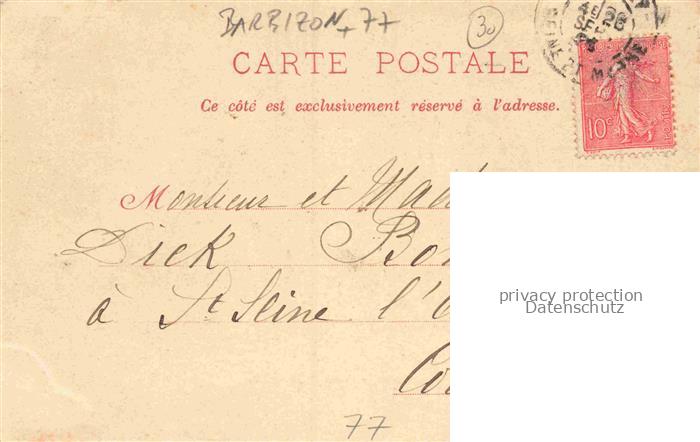 BARBIZON + 77
30
CARTE POSTALE
Ce côté est exclusivement réservé à l'adresse.
10c
Monsieur et Mad
Dick Bon
à St Seine l'
Co
privacy protection
Datenschutz
77